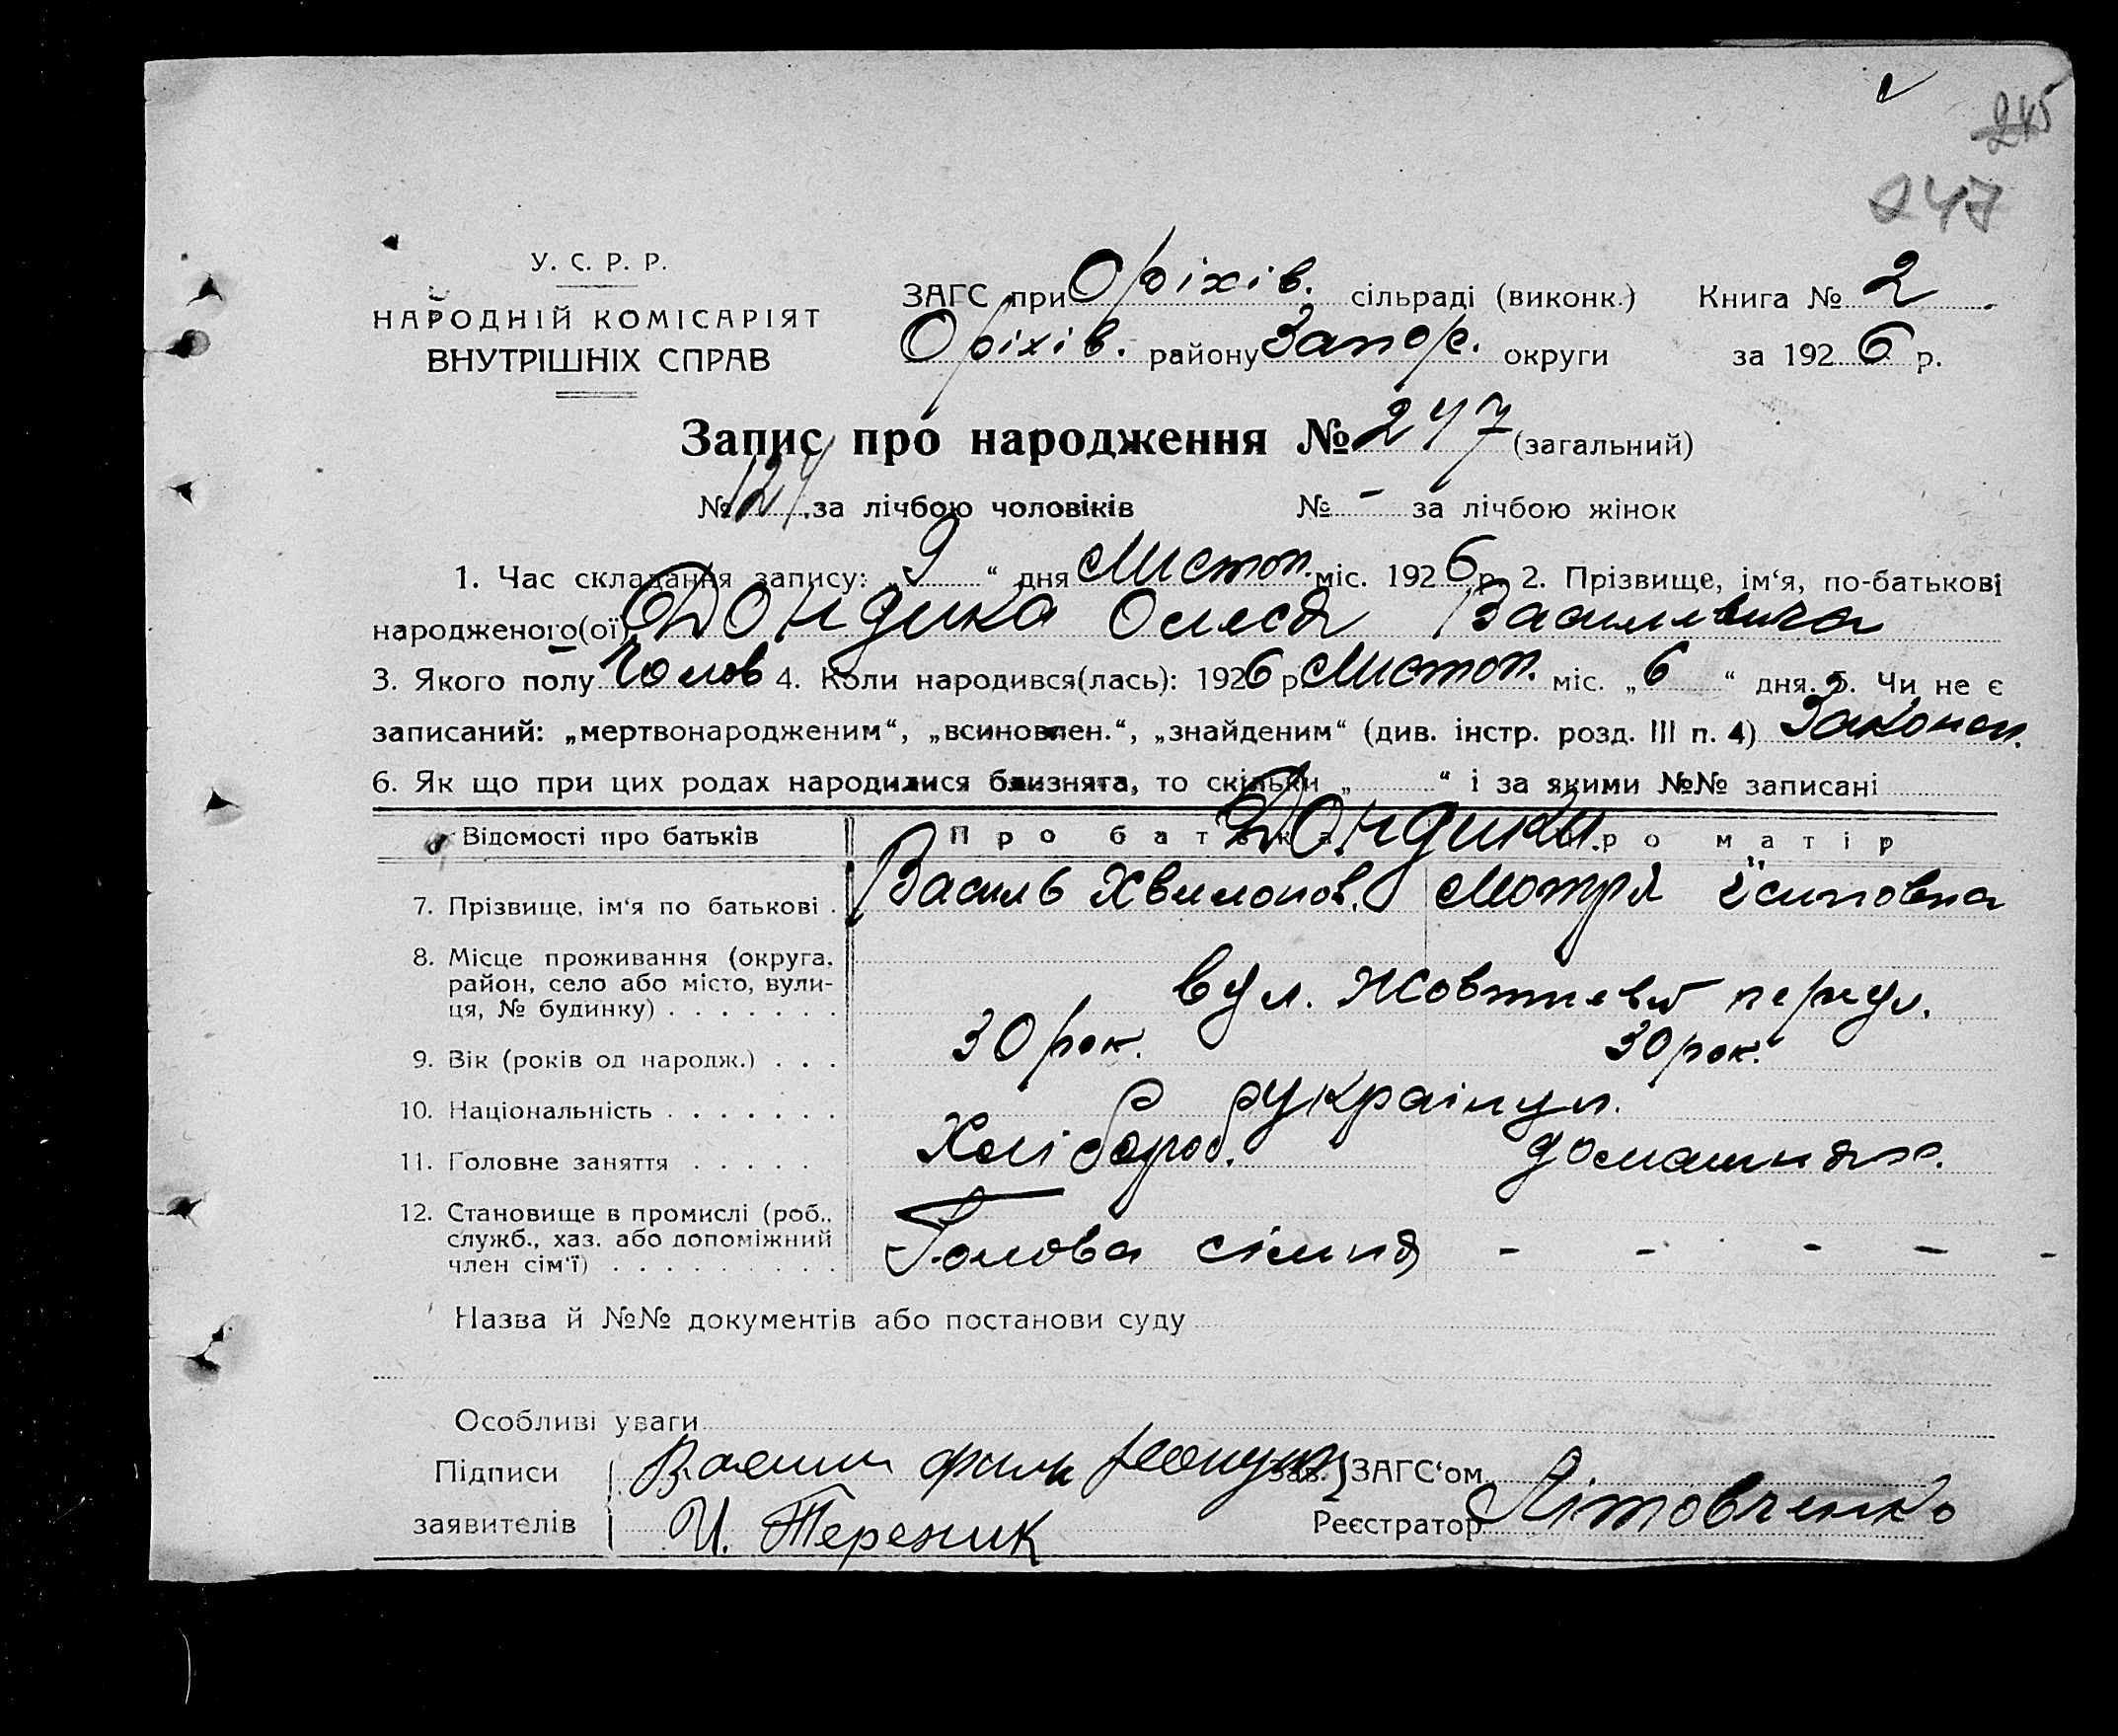 245
247
У. С. Р. Р.
НАРОДНІЙ КОМІСАРІЯТ
ВНУТРІШНІХ СПРАВ
ЗАГС при Оріхів. сільраді (виконк.) Книга № 2
Оріхів. району Запор. округи за 1926 р.
Запис про народження № 247 (загальний)
№ 124 за лічбою чоловіків № - за лічбою жінок
1. Час складання запису: „9“ дня Листоп. міс. 1926 р. 2. Прізвище, ім‘я, по-батькові
народженого(ої) Дондика Олеся Васильвича
3. Якого полу Чолов 4. Коли народився(лась): 1926 р Листоп. міс. „6“ дня. 5. Чи не є
записаний: „мертвонародженим“, „всиновлен.“, „знайденим“ (див. інстр. розд. III п. 4) Законон.
6. Як що при цих родах народилися близнята, то скільки „ “ і за якими №№ записані
Відомості про батьків Про батька Про матір
Дондики.
7. Прізвище, ім‘я по батькові . Василь Хвилонов. Мотря Їсиповна
8. Місце проживання (округа, район, село або місто, вулиця, № будинку) . . . . . . . вул. Жовтневій
9. Вік (років од народж.) . . . 30 рок. 30 рок.
10. Національність . . . . . . . українц.
11. Головне заняття . . . . . Хлібороб. домашня
12. Становище в промислі (роб., служб., хаз. або допоміжний член сім‘ї) . . . . . . . . . Голова сімпя - - - - -
Назва й №№ документів або постанови суду
Особливі уваги
Підписи Зав. ЗАГС‘ом
заявителів И. Терезник Реєстратор Літовченко